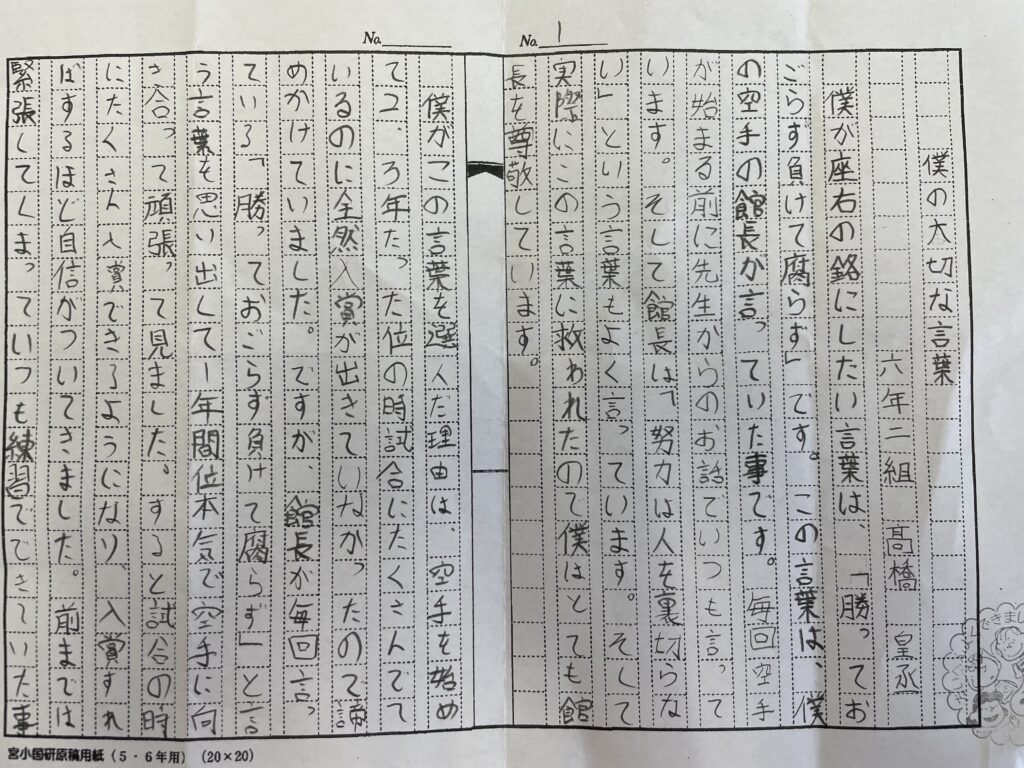 No.
No. 1
僕の大切な言葉
六年二組 髙橋 皇丞
僕が座右の銘にしたい言葉は、「勝ってお
ごらず負けて腐らず」です。この言葉は、僕
の空手の館長が言っていた事です。毎回空手
が始まる前に先生からのお話でいつも言って
います。そして館長は「努力は人を裏切らな
い」という言葉もよく言っています。そして
実際にこの言葉に救われたので僕はとても館
長を尊敬しています。
僕がこの言葉を選んだ理由は、空手を始め
て2、3年たった位の時試合にたくさんでて
いるのに全然入賞が出きていなかったので諦
めかけていました。ですが、館長が毎回言っ
ている「勝っておごらず負けて腐らず」と言
う言葉を思い出して1年間位本気で空手に向
き合って頑張って見ました。すると試合の時
にたくさん入賞できるようになり、入賞すれ
ばするほど自信がついてきました。前までは
緊張してしまっていつも練習でできていた事
宮小国研原稿用紙(5・6年用) (20×20)
できました